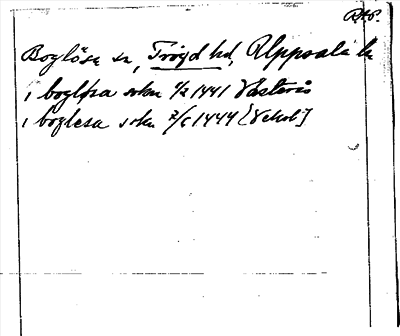 RAP.
Boglösa sn, Trögd hd, Uppsala ln
i bogløsa sokn 9/2 1441 Västerås
i boglesa sokn 7/6 1444 [Vehol]